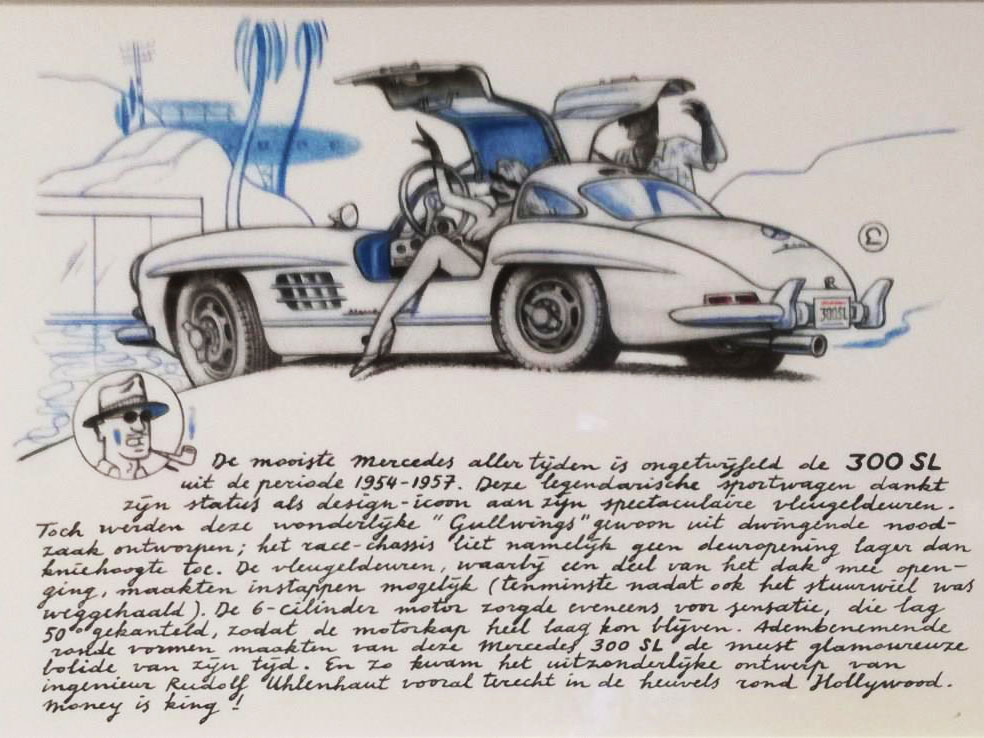 £
R
300SL
De mooiste Mercedes aller tijden is ongetwijfeld de 300 SL
uit de periode 1954-1957. Deze legendarische sportwagen dankt
zijn status als design-icoon aan zijn spectaculaire vleugeldeuren.
Toch werden deze wonderlijke "Gullwings" gewoon uit dwingende nood-
zaak ontworpen; het race-chassis liet namelijk geen deuropening lager dan
kniehoogte toe. De vleugeldeuren, waarbij een deel van het dak mee open-
ging, maakten instappen mogelijk (tenminste nadat ook het stuurwiel was
weggehaald). De 6-cilinder motor zorgde eveneens voor sensatie, die lag
50° gekanteld, zodat de motorkap heel laag kon blijven. Adembenemende
ronde vormen maakten van deze Mercedes 300 SL de meest glamoureuze
bolide van zijn tijd. En zo kwam het uitzonderlijke ontwerp van
ingenieur Rudolf Uhlenhaut vooral terecht in de heuvels rond Hollywood.
Money is king!